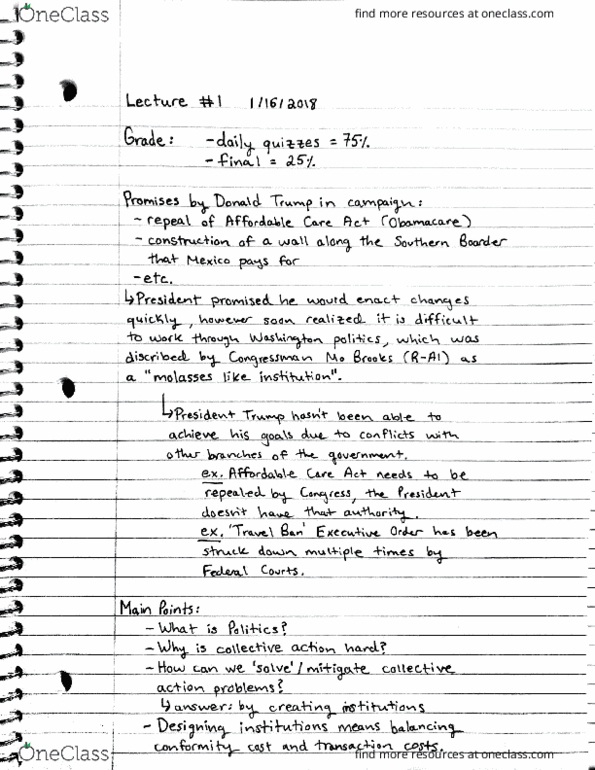 OneClass
find more resources at oneclass.com
Lecture #1 1/16/2018
Grade: - daily quizzes = 75%
- final = 25%
Promises by Donald Trump in campaign:
- repeal of Affordable Care Act (Obamacare)
- construction of a wall along the Southern Boarder
that Mexico pays for
- etc.
↳ President promised he would enact changes
quickly, however soon realized it is difficult
to work through Washington politics, which was
discribed by Congressman Mo Brooks (R-Al) as
a "molasses like institution".
↳ President Trump hasn't been able to
achieve his goals due to conflicts with
other branches of the government.
ex. Affordable Care Act needs to be
repealed by Congress, the President
doesn't have that authority.
ex. 'Travel Ban' Executive Order has been
struck down multiple times by
Federal Courts.
Main Points:
- What is Politics?
- Why is collective action hard?
- How can we 'solve'/mitigate collective
action problems?
↳ answer: by creating institutions
- Designing institutions means balancing
conformity cost and transaction costs.
OneClass
find more resources at oneclass.com